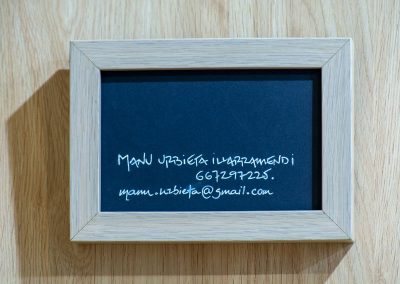 MANU URBIETA ILLARRAMENDI
667297225.
manu.urbieta@gmail.com